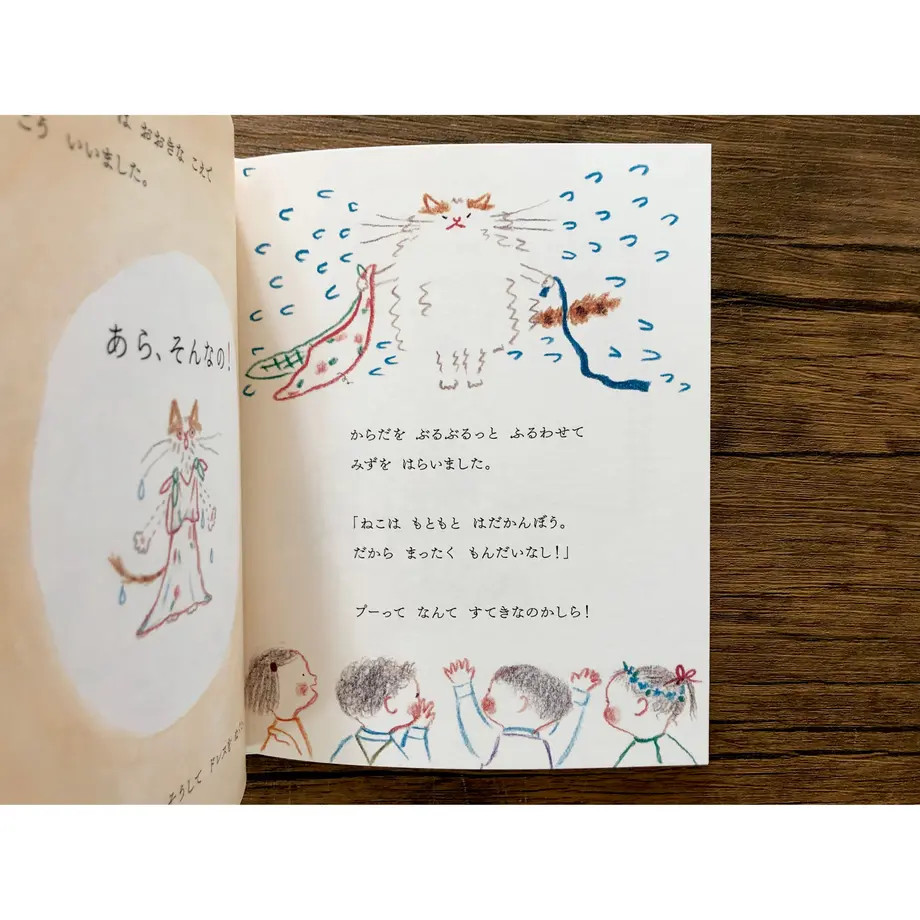 は おおきな こえで
こう いいました。
あら、そんなの!
そうして ドレスを
からだを ぷるぷるっと ふるわせて
みずを はらいました。
「ねこは もともと はだかんぼう。
だから まったく もんだいなし!」
プーって なんて すてきなのかしら!